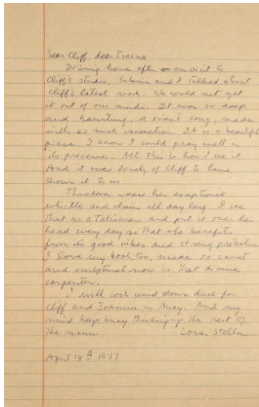 Dear Cliff, dear Jeanne
Driving home after our visit to
Cliff's studio, and I talked about
Cliff's latest work. We could not get
it out of our minds. It was so deep
and haunting, a siren's song, made
with so much veneration. It is a beautiful
piece. I know I could pray well in
its presence. All this is how I see it
And it was lovely of Cliff to have
shown it to us.
Theodora wears her sculptural
whistle and chain all day long. I see
that as a Talisman and put it over her
head every day so that she benefits
from its good vibes and strong protection
I love my book, too, made so
and sculptural now by that divine
carpenter.
I will cook wind down duck for
Cliff and Jeanne in May. And my
mind keeps busy thinking up the rest of
the menu. Love, Stella
April 14th 1977